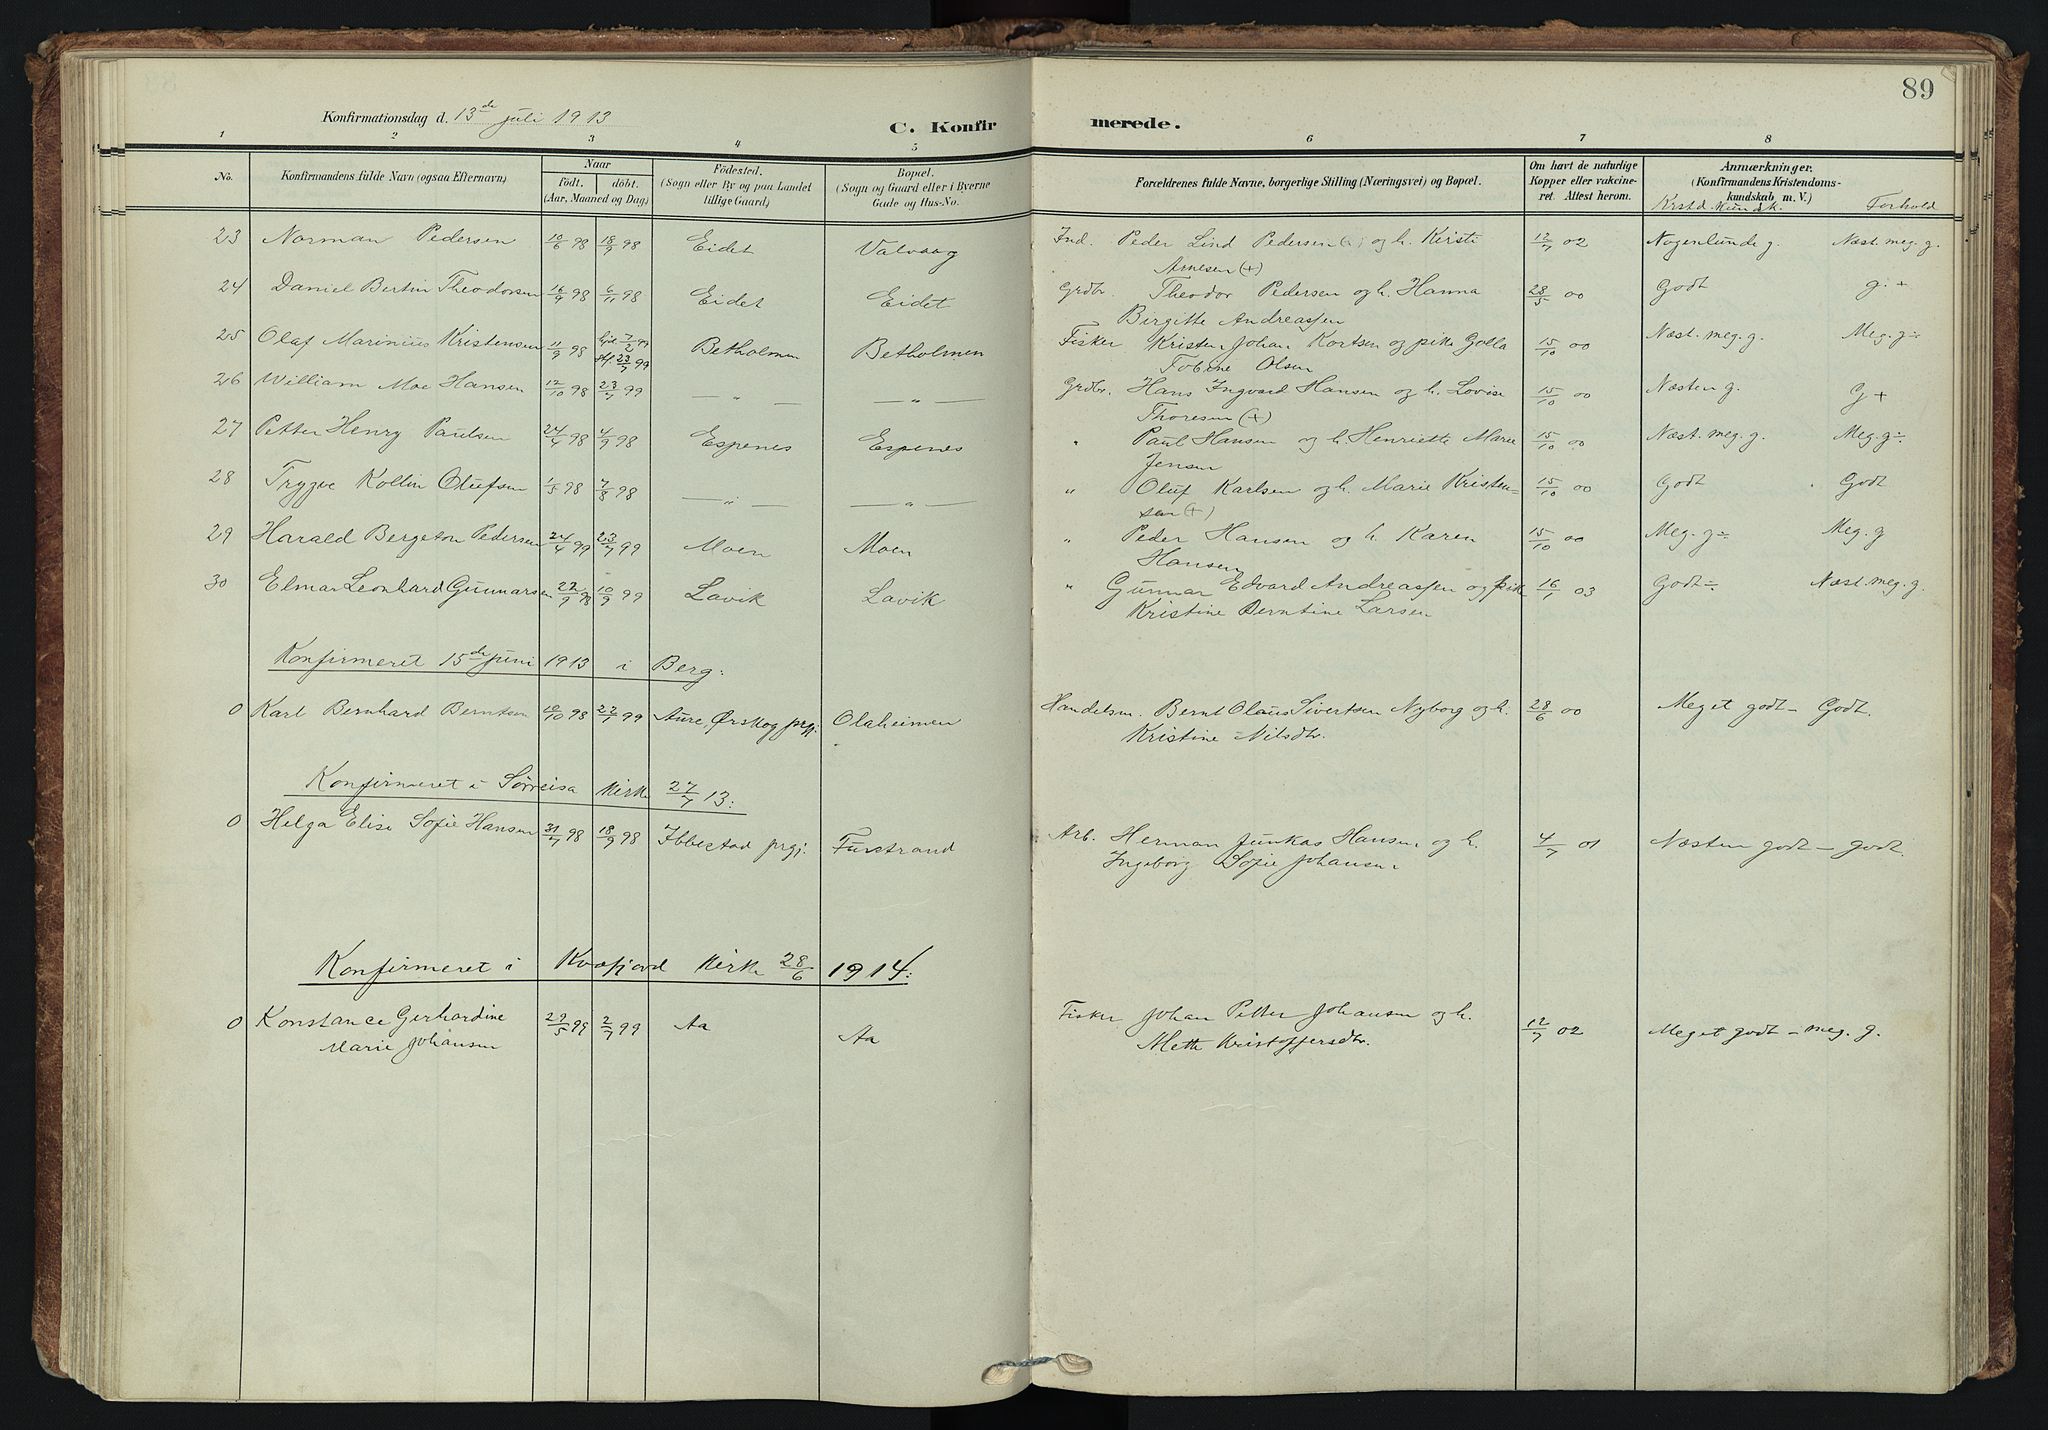 89
Konfirmationsdag d. 13de juli 1913
C. Konfirmerede.
1 2 3 4 5 6 7 8
No. Konfirmandens fulde Navn (ogsaa Efternavn)
Naar födt. döbt. (Aar, Maaned og Dag)
Födested. (Sogn eller By og paa Landet tillige Gaard)
Bopæl. (Sogn og Gaard eller i Byerne Gade og Hus-No.
Forældrenes fulde Navne, borgerlige Stilling (Næringsvei) og Bopæl.
Om havt de naturlige Kopper eller vakcineret. Attest herom.
Anmærkninger. (Konfirmandens Kristendomskundskab m. V.)
Krstd. kundsk. Forhold
23 Norman Pedersen 10/6 98 18/9 98 Eidet Valvaag Ind. Peder Lind Pedersen (+) og h. Kirsti 12/7 02 Nogenlunde g. Næst. meg. g.
Arnesen (+)
24 Daniel Bertin Theodorsen 16/9 98 6/11 98 Eidet Eidet Grdbr. Theodor Pedersen og h. Hanna 28/5 00 Godt g. +
Birgitte Andreassen
25 Olaf Marinius Kristensen 11/9 98 hjd. 7/2 99 Betholmen Betholmen Fisker Kristen Johan Kortsen og pike Golla 15/10 00 Næst. meg. g. Meg. g ÷
stf. 23/7 99 Tobine Olsen
26 William Moe Hansen 12/10 98 23/7 99 — „ — — „ — Grdbr. Hans Ingvard Hansen og h. Lovise 15/10 00 Næsten g. G +
Thoresen (+)
27 Petter Henry Paulsen 24/4 98 4/9 98 Espenes Espenes „ Paul Hansen og h. Henriette Marie 15/10 00 Næst. meg. g. Meg. g ÷
Jensen
28 Trygve Kollin Olufsen 1/5 98 7/8 98 — „ — — „ — „ Oluf Karlsen og h. Marie Kristen= 15/10 00 Godt Godt
sen (+)
29 Harald Bergeton Pedersen 24/4 99 23/7 99 Moen Moen „ Peder Hansen og h. Karen 15/10 00 Meg. g ÷ Meg. g
Hansen
30 Elmar Leonhard Gunnarsen 22/9 98 10/9 99 Lavik Lavik „ Gunnar Edvard Andreassen og pik 16/1 03 Godt ÷ Næst. meg. g.
Kristine Berntine Larsen
Konfirmeret 15de juni 1913 i Berg:
0 Karl Bernhard Berntsen 10/10 98 22/1 99 Aure, Ørskog prgj. Olaheimen Handelsm. Bernt Olaus Sivertsen Nyborg og h. 28/6 00 Meget godt – Godt.
Kristine Nilsdtr.
Konfirmeret i Sørreisa Kirke 27/7 13:
0 Helga Elise Sofie Hansen 31/7 98 18/9 98 Ibbestad prgj. Furstrand Arb. Herman Junkas Hansen og h. 4/7 01 Næsten godt – godt.
Ingeborg Sofie Johansen
Konfirmeret i Kvæfjord Kirke 28/6 1914:
0 Konstance Gerhardine 29/5 99 2/7 99 Aa Aa Fisker Johan Petter Johansen og h. 12/7 02 Meget godt – meg. g.
Marie Johansen Mette Kristoffersdtr.